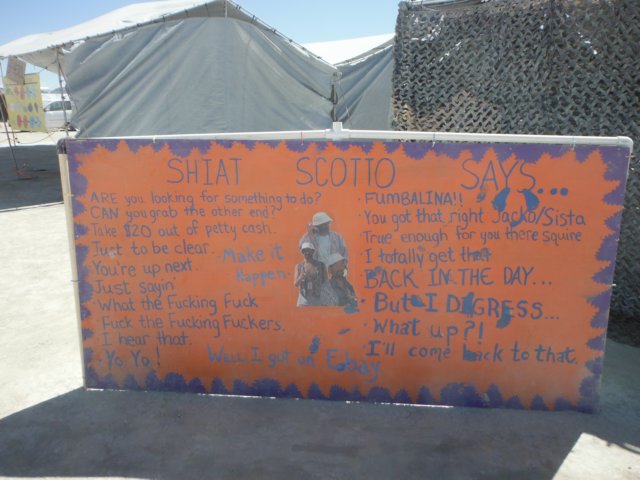 SHIAT SCOTTO SAYS...
ARE you looking for something to do?
CAN you grab the other end?
Take $20 out of petty cash.
Just to be clear.
You're up next.
Just sayin'
• What the Fucking Fuck
Fuck the Fucking Fuckers.
• I hear that.
• Yo, Yo!
• Make it
Happen.
Well, I got on Ebay
• FUMBALINA!!
• You got that right Jacko/Sista
True enough for you there squire
I totally get that
BACK IN THE DAY...
• But I DIGRESS...
• What up?!
I'll come back to that.